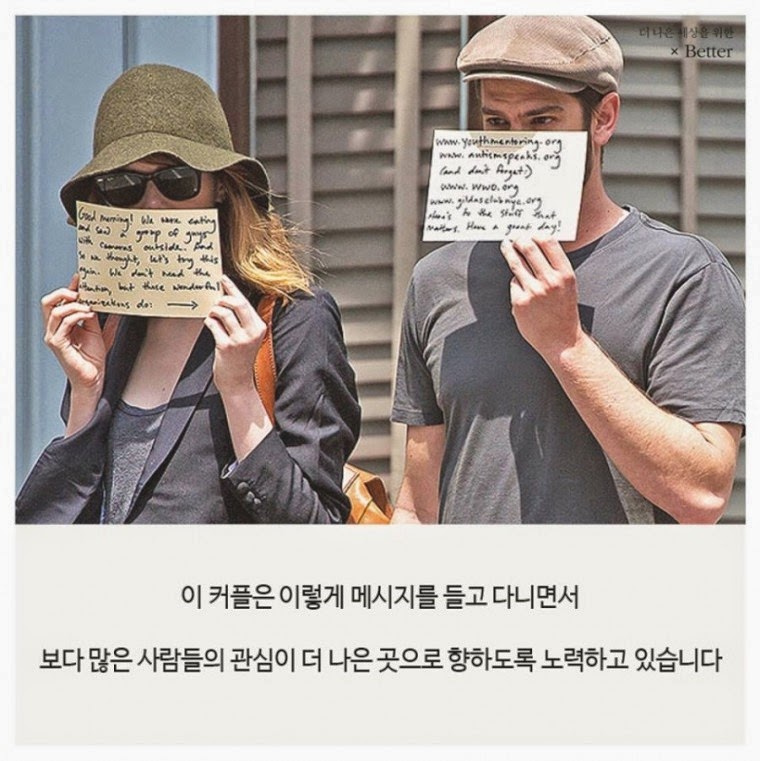 더 나은 세상을 위한
× Better
Good morning! We were eating
and saw a group of guys
with cameras outside. And
so we thought, let's try this
again. We don't need the
attention, but these wonderful
organizations do: →
www.youthmentoring.org
www.autismspeaks.org
(and don't forget:)
www.wwo.org
www.gildasclubnyc.org
Here's to the stuff that
matters. Have a great day!
이 커플은 이렇게 메시지를 들고 다니면서
보다 많은 사람들의 관심이 더 나은 곳으로 향하도록 노력하고 있습니다